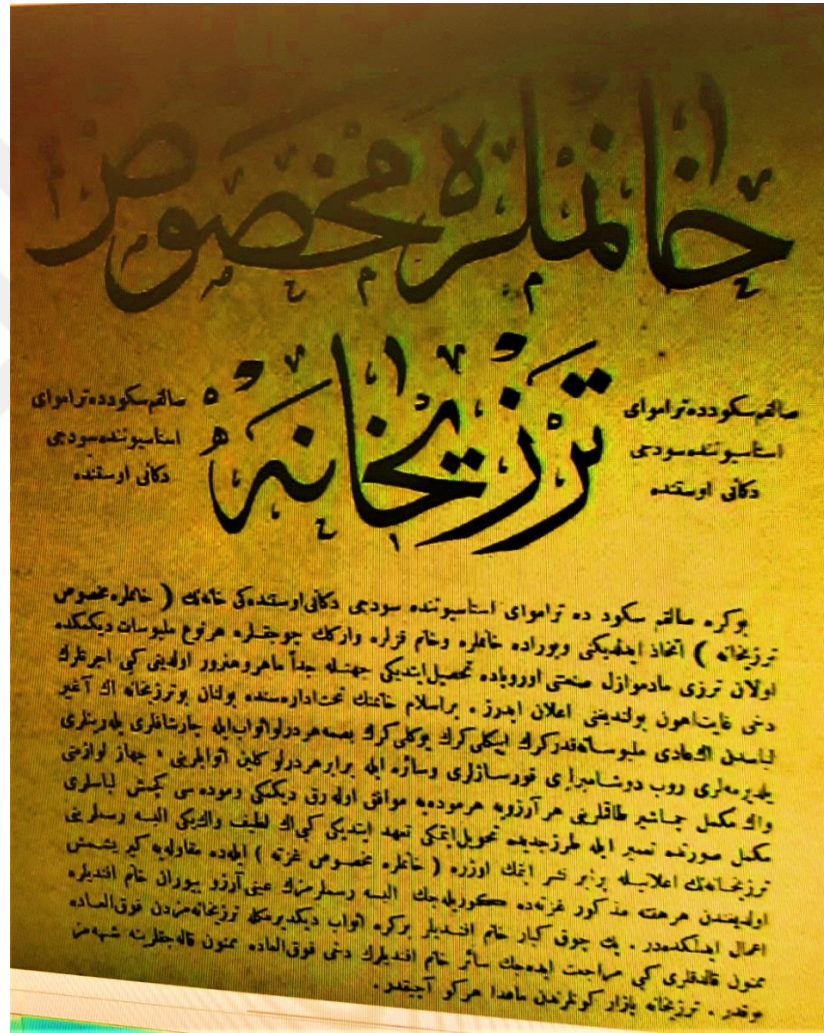 خانملره مخصوص
ترزیخانه
صالقم سکودده تراموای
استاسیوننده سودجی
دکانی اوستنده
صالقم سکودده تراموای
استاسیوننده سودجی
دکانی اوستنده
بوکره صالقم سکود ده تراموای استاسیوننده سودجی دکانی اوستنده کی خانه نك ( خانملره مخصوص
ترزیخانه ) اتخاذ ایدلدیکنی وبوراده خانملره وخانم قزلره وارکك چوجقلره هرنوع ملبوسات دیکمکده
اولان ترزی مادموازل صنعتی اوروپاده تحصیل ایتدیکی جهتله جداً ماهر وهنرور اولدیغی کبی اجرتلرك
دخی غایت اهون بولندیغنی اعلان ایدرز . براسلام خانمنك تحت اداره سنده بولنان بوترزیخانه اك آغیر
لباسدن اك عادی ملبوساته قدر کرك ایپکلی کرك یوکلی کرك بصمه هردرلو اثواب ایله چارشافلری یلدرینلری
یلدیرمه لری روب دوشامبرای قورسازلری وسائره ایله برابر هردرلو کلین اثوابلرینی ، جهاز لوازمنی
واك مکمل چماشیر طاقلرینی هر آرزویه هرموده یه موافق اوله رق دیکمکی وموده سی کچمش لباسلری
مکمل صورتده تعمیر ایله طرز جدیده تحویل ایتمکی تعهد ایتدیکی کبی اك لطیف واك یکی البسه رسملرینی
ترزیخانه نك اعلانیله برابر نشر ایتمك اوزره ( خانملره مخصوص غزته ) ایله ده مقاوله یه کیریشمش
اولدیغندن هر هفته مذکور غزته ده کوریله جك البسه رسملرینك عینی آرزو بیوران خانم افندیلره
اعمال ایدیله کده در . پك چوق کبار خانم افندیلر برکره اثواب دیکدیرمکله ترزیخانه مزدن فوق العاده
ممنون قالدقلری کبی مراجعت ایده جك سائر خانم افندیلرك دخی فوق العاده ممنون قاله جقلرینه شبهه مز
یوقدر . ترزیخانه پازار کونلرندن ماعدا هرکون آچیقدر .